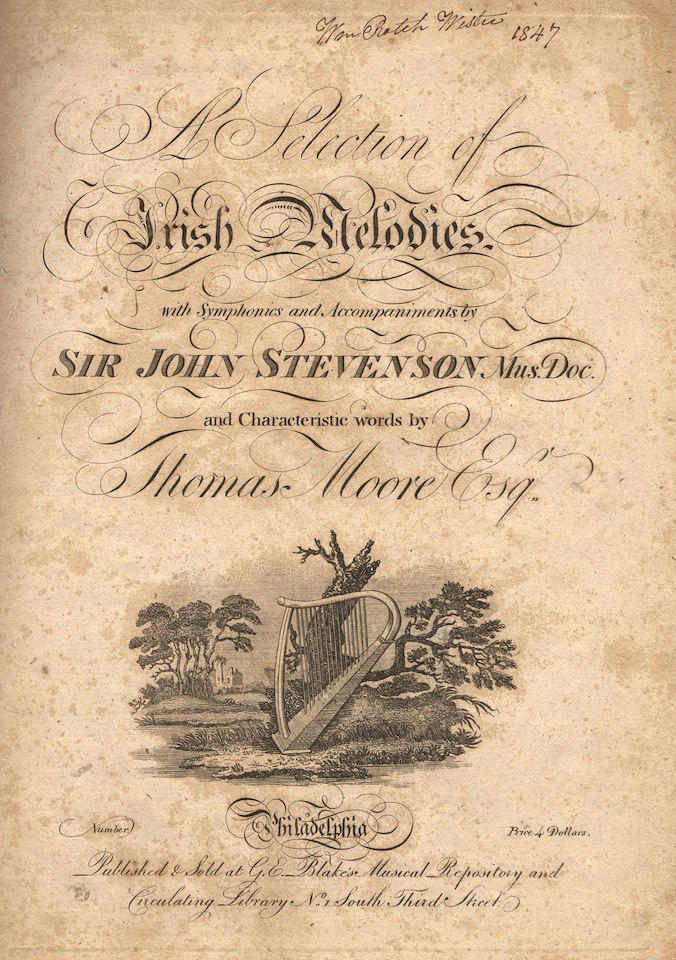 Wm Rotch Wister 1847
A Selection of
Irish Melodies.
with Symphonies and Accompaniments by
SIR JOHN STEVENSON Mus. Doc.
and Characteristic words by
Thomas Moore Esqr.
Number
Philadelphia
Price 4 Dollars.
Published & Sold at G. E. Blake's Musical Repository and
Circulating Library No. 1 South Third Street.